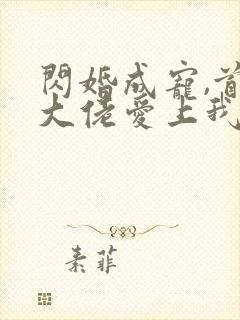 閃婚成寵,首
大佬愛上我
素菲